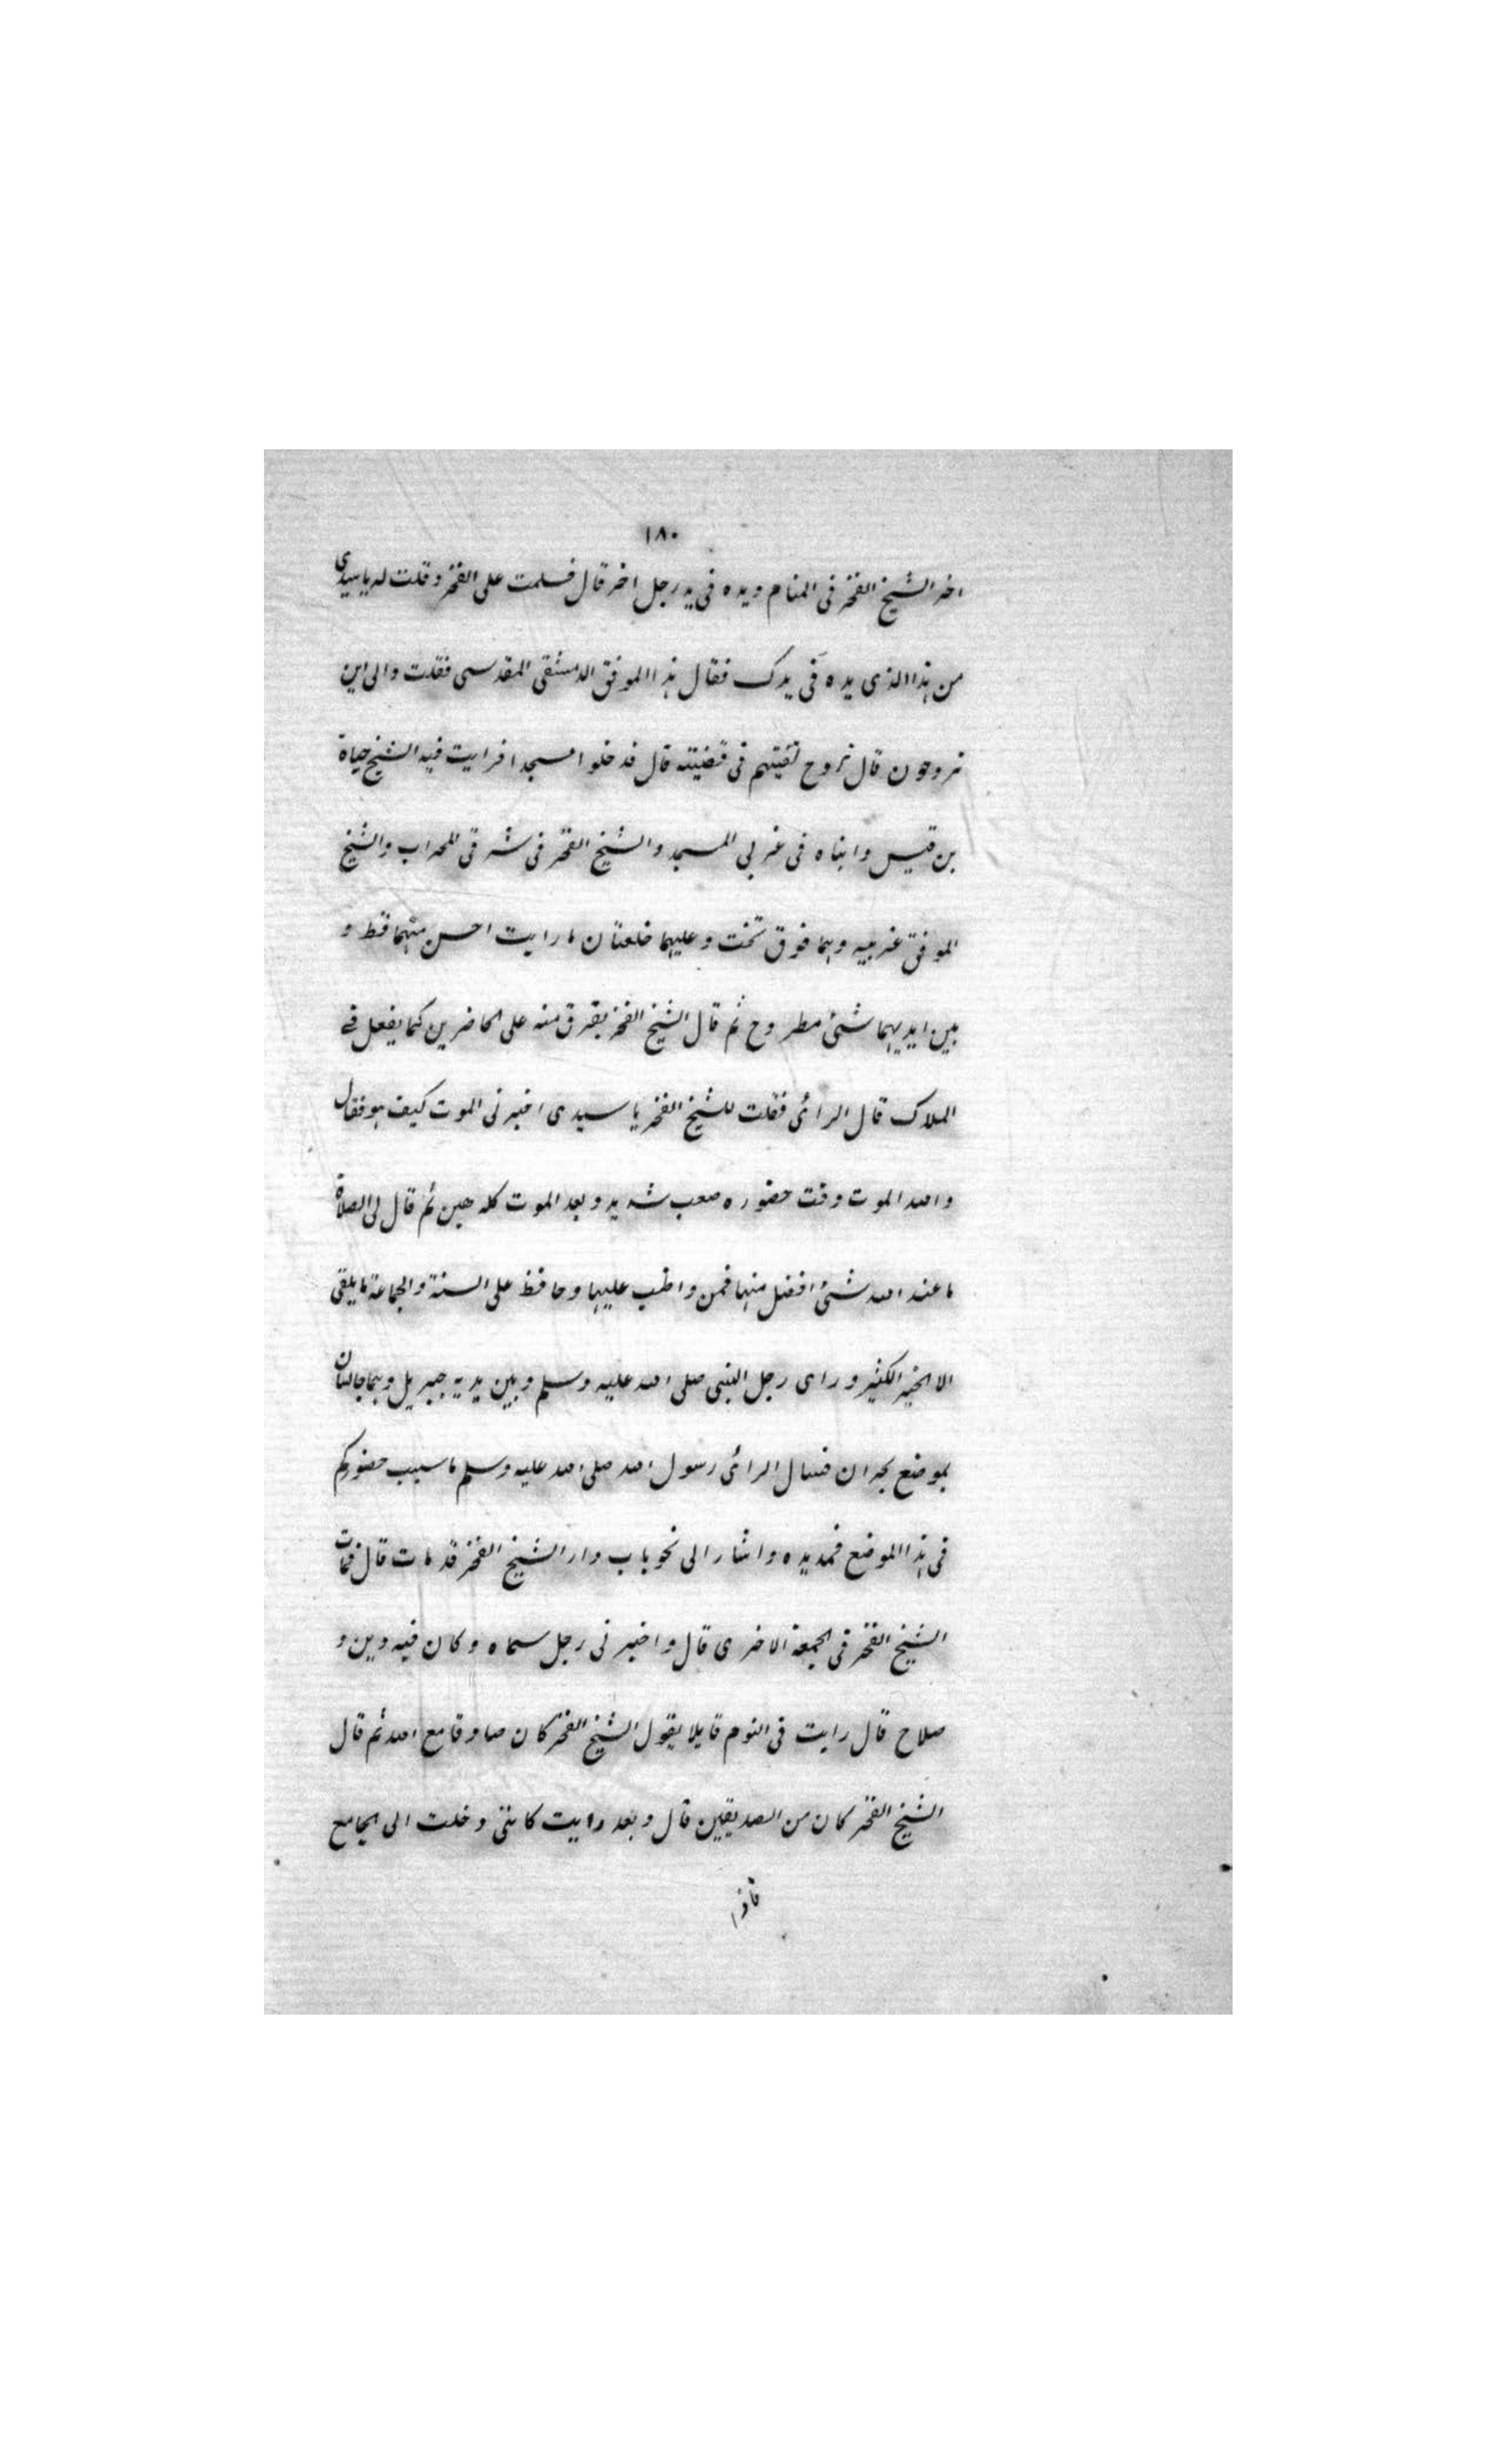 ١٨٠
اخر الشيخ الفخر فى المنام ويده فى يد رجل اخر قال فسلمت على الفخر وقلت له يا سيدى
من هذا الذى يده فى يدك فقال هذا الموفق الدمشقى المقدسى فقلت والى اين
تروحون قال نروح نفتيهم فى قضيته قال فدخلوا مسجدا فرايت فيه الشيخ حياة
بن قيس وابناه فى غربى المسجد والشيخ الفخر فى شرقى المحراب والشيخ
الموفق غربيه وهما فوق تخت وعليهما خلعتان ما رايت احسن منهما قط و
بين ايديهما شىئ مطروح ثم قال الشيخ الفخر يفرق منه على الحاضرين كما يفعل فى
الملاك قال الرائى فقلت للشيخ الفخر يا سيدى اخبرنى الموت كيف هو فقال
والله الموت وقت حضوره صعب شديد وبعد الموت كله هين ثم قال لى الصلاة
ما عند الله شئ افضل منها فمن واظب عليها وحافظ على السنة والجماعة ما يلقى
الا الخير الكثير وراى رجل النبى صلى الله عليه وسلم وبين يديه جبريل وهما جالسان
بموضع بحران فسال الرائى رسول الله صلى الله عليه وسلم ما سبب حضوركم
فى هذا الموضع فمد يده واشار الى نحو باب دار الشيخ الفخر قد مات قال فمات
الشيخ الفخر فى الجمعة الاخرى قال واخبرنى رجل سماه وكان فيه دين و
صلاح قال رايت فى النوم قايلا يقول الشيخ الفخر كان صادقا مع الله ثم قال
الشيخ الفخر كان من الصديقين قال وبعد رايت كاننى دخلت الى الجامع
فاذا